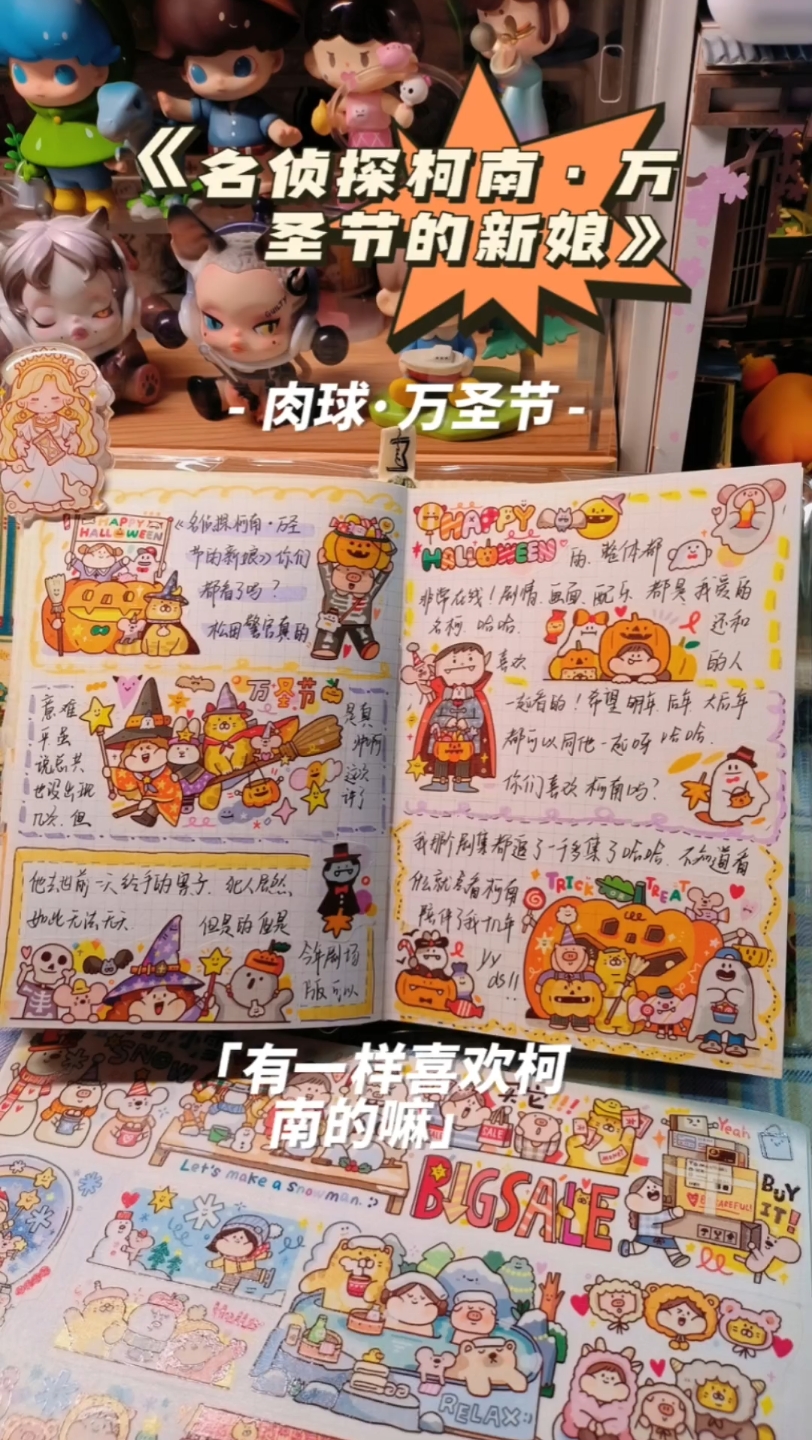 《名侦探柯南·万
圣节的新娘》
- 肉球·万圣节 -
HAPPY
HALLOWEEN
《名侦探柯南·万圣
节的新娘》你们
都看了吗?
松田警官真的
万圣节
意难
平虽
说总共
也没出现
几次,但
是真
这次
他去世前一次给手的男子,犯人居然
如此无法无天
但是的但是
今年剧场
版可以
HAPPY
HALLOWEEN
的,整体都
非常在线!剧情、画面、配乐、都是我爱的
名柯,哈哈,
还和
喜欢
的人
一起看的!希望明年、后年、大后年
都可以同他一起呀哈哈.
你们喜欢柯南吗?
我那个剧集都追了一千多集了哈哈,不知道看
什么就会看柯南
陪伴了我十几年
yy
ds!!
TRICK
TREAT
「有一样喜欢柯
南的嘛」
SNOW
SALE
Yeah
Let's make a snowman. :)
BUGSALE
BE CAREFUL!
BUY
IT!
RELAX